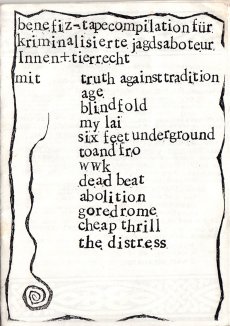 benefiz-tapecompilation für
kriminalisierte jagdsaboteur
Innen+tierrecht
mit truth against tradition
age
blindfold
my lai
six feet underground
toand fro
wwk
dead beat
abolition
goredrome
cheap thrill
the distress